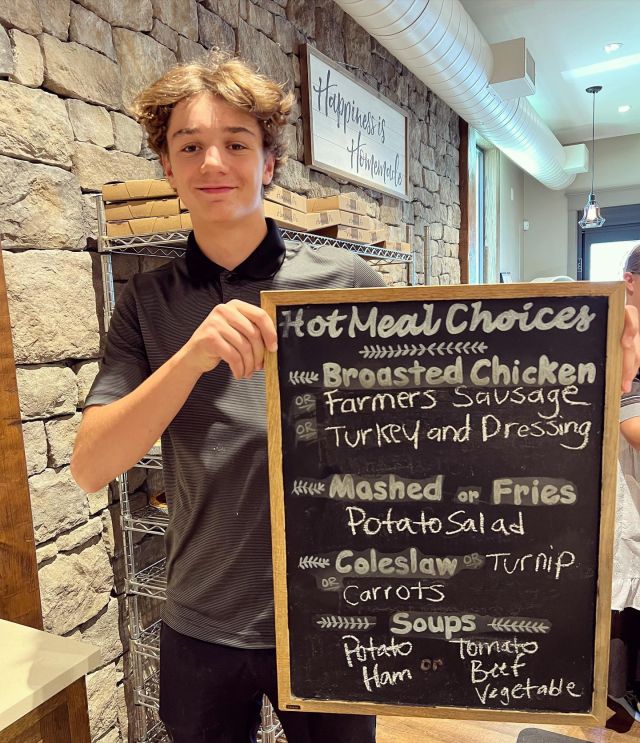 Happiness is
Homemade
Hot Meal Choices
Broasted Chicken
OR Farmers Sausage
OR Turkey and Dressing
Mashed or Fries
Potato Salad
Coleslaw OR Turnip
OR Carrots
Soups
Potato Ham or Tomato Beef Vegetable